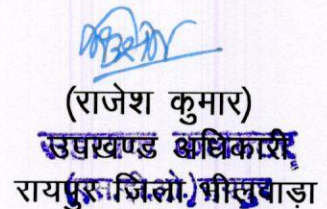 (राजेश कुमार)
उपखण्ड अधिकारी
रायपुर जिला भीलवाड़ा